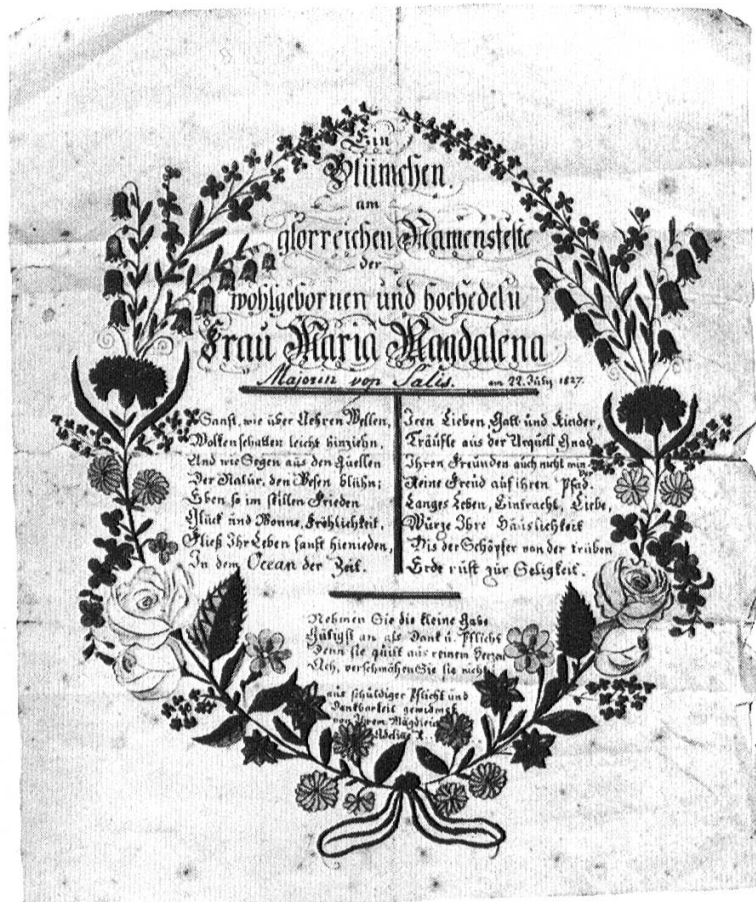 Ein
Blümchen.
am
glorreichen Namensfeste
der
wohlgebornen und hochedeln
Frau Maria Magdalena
Majorin von Salis. am 22. July 1827.
Sanft, wie über Aehren Wellen,
Wolkenschatten leicht hinziehn,
Und wie Segen aus den Quellen
Der Natur, den Wesen blühn;
Eben so im stillen Frieden
Glück und Wonne, Fröhlichkeit,
Fließ Ihr Leben sanft hienieden,
In dem Ocean der Zeit.
Ieen Lieben, Gatt und Kinder,
Träufle aus der Urquell Gnad
Ihren Freunden auch nicht minder
Reine Freud auf ihren Pfad.
Langes Leben, Eintracht, Liebe,
Würze Ihre Häuslichkeit
Bis der Schöpfer von der trüben
Erde ruft zur Seligkeit.
Nehmen Sie die kleine Gabe
Gütigst an als Dank u. Pflicht
Denn sie quillt aus reinem Herzen
Ach, verschmähen Sie sie nicht.
aus schuldiger Pflicht und
Dankbarkeit gewidmet
von Ihrem